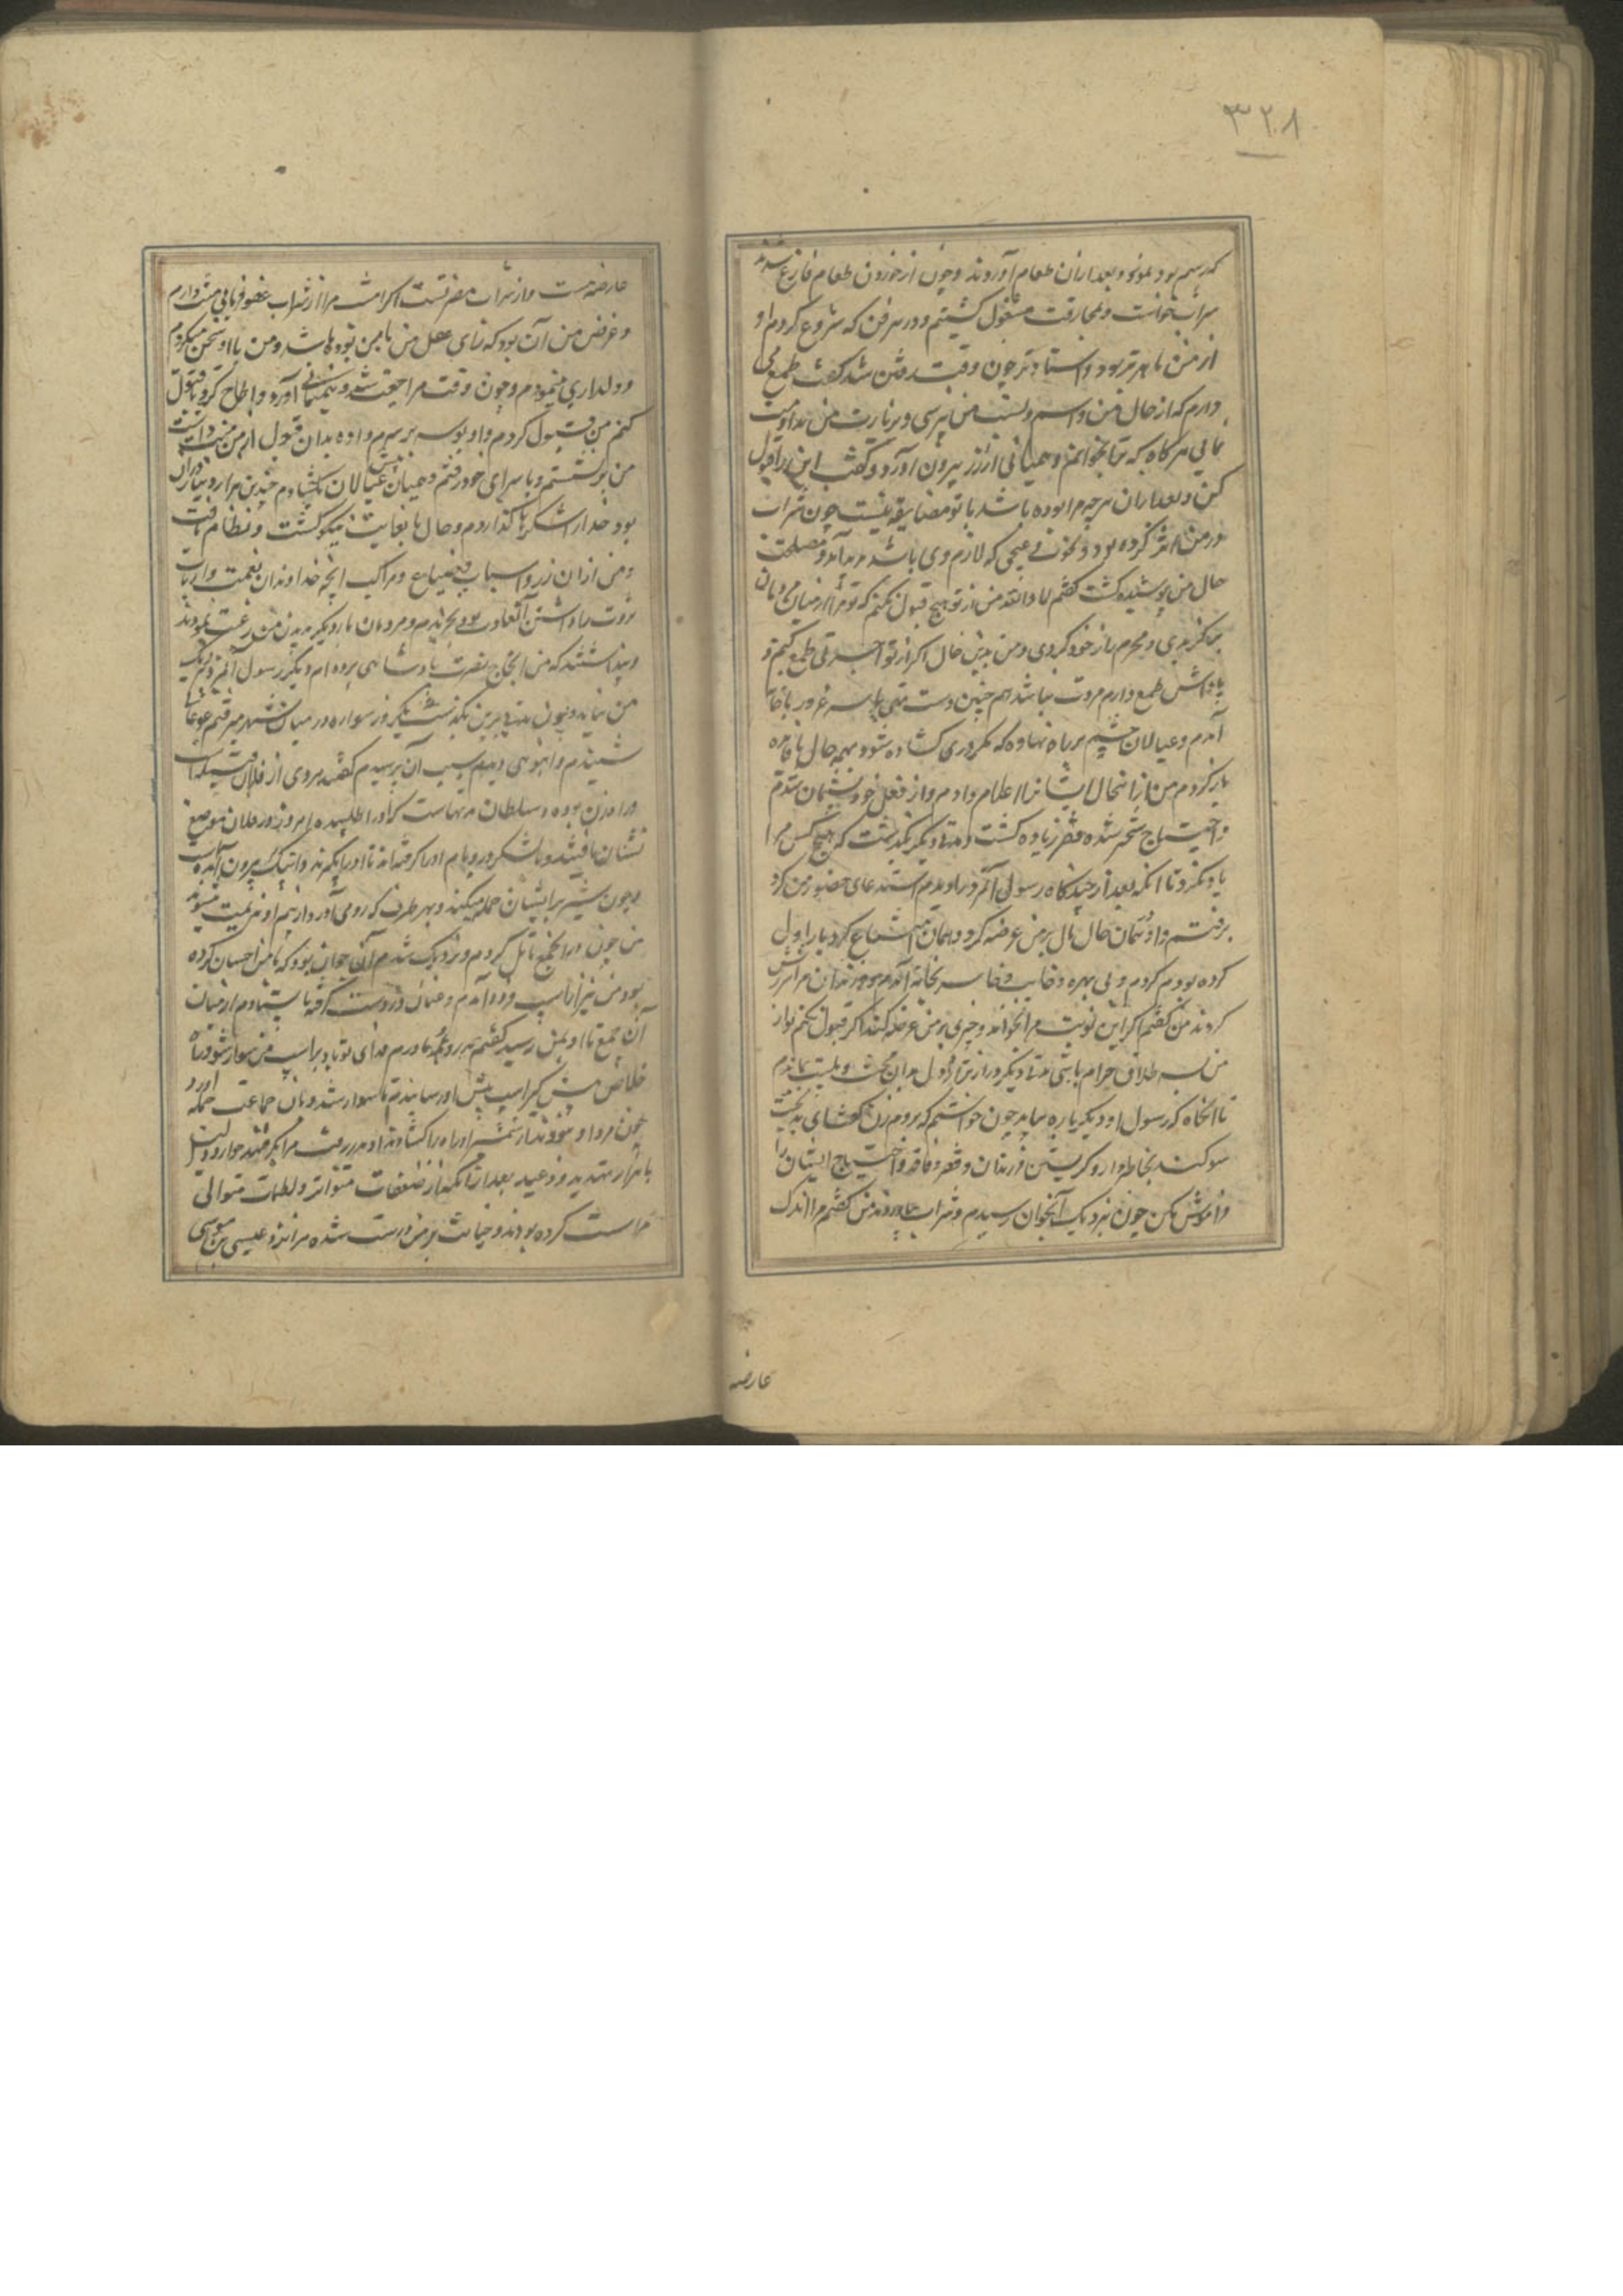 ۳۲۸
که رسم بود بنمود و بعد از آن طعام آوردند و چون از خوردن طعام فارغ شدند
شراب خواست و بمعارقت مشغول گشتیم و در هر فن که شروع کردم او
از من ماهرتر بود و استادتر چون وقت رفتن شد گفت طمع می
دارم که از حال من و اسم و نسب من نپرسی و بزیارت من مداومت
نمائی هر گاه که ترا بخوانم و همیانی از زر بیرون آورد و گفت این را قبول
کن و بعد از آن هرچه مرا بوده باشد با تو مضایقه نیست چون شراب
در من اثر کرده بود و نخوتی و عجبی که لازم وی باشد پدید آمد و مصلحت
حال من پوشیده گشت گفتم لا والله من از تو هیچ قبول نکنم که تو مرا از میان مردمان
برگزیدی و محرم راز خود کردی و من بدین حال اگر از تو اجرتی طمع کنم و
پاداش طمع دارم مروت نباشد هم چنین دست تهی با سر غرور با خانه
آمدم و عیالان چشم بر راه نهاده که مگر دری گشاده شود و همه حال با فایده
باز گردم من از آن حال ایشان را اعلام دادم و از فعل خود پشیمان شدم
و احتیاج سخرشده فقر زیاده گشت و مدتی دیگر بگذشت که هیچ کس مرا
یاد نکرد تا آنکه بعد از چند گاه رسول آن مرد را دیدم استدعای حضور من کرد
برفتم و او همان حال مال بر من عرضه کرد و همان امتناع که در بار اول
کرده بودم کردم و بی بهره و خایب و خاسر بخانه آمدم و فرزندان مرا سرزنش
کردند من گفتم اگر این نوبت مرا بخواند و چیزی بر من عرضه کند اگر قبول نکنم تو از
من سه طلاق حرام باشی مدتی دیگر دراز تر از اول بدان محنت و بلیت بماندم
تا آنگاه که رسول او دیگر باره بیامد چون خواستم که بروم زن گفت ای بدبخت
سوگند بخاطر دار و گریستن فرزندان و فقر و فاقه و احتیاج ایشان را
فراموش مکن چون نزدیک آن جوان رسیدم و شراب بیاوردند من گفتم مرا اندک
عارضه
عارضه هست و از شراب مضرتست اگر امشب مرا از شراب عفو فرمائی منت دارم
و غرض من آن بود که تا رای عقل من با من بوده باشد و من با او سخن میکردم
و دلداری مینمودم و چون وقت مراجعت شد همیانی آورد و الحاح کرد تا قبول
کنم من قبول کردم و او بوسه بر سرم داد و بدان قبول از من منت داشت
من برگشتم و با سرای خود رفتم و همیان پیش عیالان بگشادم چندین هزار دینار در آن
بود خدا را شکرها گذاردم و حال ما بغایت نیکو گشت و نظام یافت
و من از آن زر و اسباب و ضیاع و مراکب آنچه خداوندان نعمت و ارباب
ثروت را داشتن آن عادت بود بخریدم و مردمان بار دیگر بدیدن من رغبت نمودند
و پنداشتند که من التجا بحضرت پادشاهی برده‌ام و دیگر رسول آن مرد نزدیک
من نیامد و چون مدتی برین بگذشت یک روز سواره در میان شهر میرفتم غوغا
شنیدم و انبوهی دیدم سبب آن پرسیدم گفتند مردی از فلان قبیله است
و راهزن بوده و سلطان مدتهاست که او را طلبیده امروز در فلان موضع
نشان یافتند و با لشکر در و بام او را گرفته‌اند تا او را بگیرند و اینک بیرون آمده است
و چون شیر بر ایشان حمله میکند و بهر طرف که رو می‌آورد از بیم او هزیمت میشوند
من چون در آن جمع تأمل کردم و نزدیک شدم آن جوان بود که با من احسان کرده
بود من نیز از اسپ فرود آمدم و عنان در دست گرفته بایستادم از میان
آن جمع تا او بمن رسید گفتم پدر و مادرم فدای تو باد بر اسپ من سوار شو و راه
خلاص پیش گیر اسپ پیش او رسانیدم تا سوار شد و بآن جماعت حمله آورد
چون مرد او نبودند از شمشیر او راه را گشادند او بدر رفت مرا بگرفتند خوار و ذلیل
با هزار تهدید و وعید بعد از آنکه از صفعات متواتر و لطمات متوالی
راست کرده بودند و خیانت بر من درست شده مرا نزد عیسی بن موسی